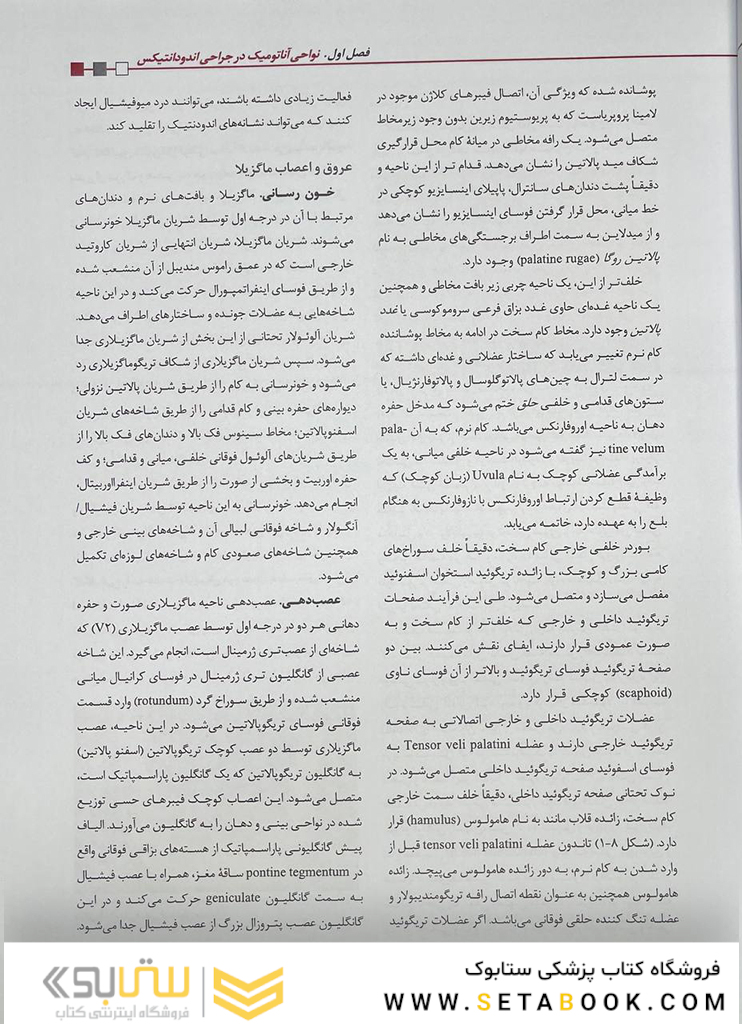 فصل اول. نواحی آناتومیک در جراحی اندودانتیکس
پوشانده شده که ویژگی آن، اتصال فیبرهای کلاژن موجود در
لامینا پروپریاست که به پریوستیوم زیرین بدون وجود زیرمخاط
متصل می‌شود. یک رافه مخاطی در میانهٔ کام محل قرارگیری
شکاف مید پالاتین را نشان می‌دهد. قدام تر از این ناحیه و
دقیقاً پشت دندان‌های سانترال، پاپیلای اینسایزیو کوچکی در
خط میانی، محل قرار گرفتن فوسای اینسایزیو را نشان می‌دهد
و از میدلاین به سمت اطراف برجستگی‌های مخاطی به نام
پالاتین روگا (palatine rugae) وجود دارد.
خلف‌تر از این، یک ناحیه چربی زیر بافت مخاطی و همچنین
یک ناحیه غده‌ای حاوی غدد بزاق فرعی سروموکوسی یا غدد
پالاتین وجود دارد. مخاط کام سخت در ادامه به مخاط پوشاننده
کام نرم تغییر می‌یابد که ساختار عضلانی و غده‌ای داشته که
در سمت لترال به چین‌های پالاتوگلوسال و پالاتوفارنژیال، یا
ستون‌های قدامی و خلفی حلق ختم می‌شود که مدخل حفره
دهان به ناحیه اوروفارنکس می‌باشد. کام نرم، که به آن pala-
tine velum نیز گفته می‌شود در ناحیه خلفی میانی، به یک
برآمدگی عضلانی کوچک به نام Uvula (زبان کوچک) که
وظیفهٔ قطع کردن ارتباط اوروفارنکس با نازوفارنکس به هنگام
بلع را به عهده دارد، خاتمه می‌یابد.
بوردر خلفی خارجی کام سخت، دقیقاً خلف سوراخ‌های
کامی بزرگ و کوچک، با زائده تریگوئید استخوان اسفنوئید
مفصل می‌سازد و متصل می‌شود. طی این فرآیند صفحات
تریگوئید داخلی و خارجی که خلف‌تر از کام سخت و به
صورت عمودی قرار دارند، ایفای نقش می‌کنند. بین دو
صفحهٔ تریگوئید فوسای تریگوئید و بالاتر از آن فوسای ناوی
(scaphoid) کوچکی قرار دارد.
عضلات تریگوئید داخلی و خارجی اتصالاتی به صفحه
تریگوئید خارجی دارند و عضله Tensor veli palatini به
فوسای اسفوئید صفحه تریگوئید داخلی متصل می‌شود. در
نوک تحتانی صفحه تریگوئید داخلی، دقیقاً خلف سمت خارجی
کام سخت، زائده قلاب مانند به نام هامولوس (hamulus) قرار
دارد. (شکل ۸-۱) تاندون عضله tensor veli palatini قبل از
وارد شدن به کام نرم، به دور زائده هامولوس می‌پیچد. زائده
هامولوس همچنین به عنوان نقطه اتصال رافه تریگومندیبولار و
عضله تنگ کننده حلقی فوقانی می‌باشد. اگر عضلات تریگوئید
فعالیت زیادی داشته باشند، می‌توانند درد میوفیشیال ایجاد
کنند که می‌تواند نشانه‌های اندودنتیک را تقلید کند.
عروق و اعصاب ماگزیلا
خون رسانی. ماگزیلا و بافت‌های نرم و دندان‌های
مرتبط با آن در درجه اول توسط شریان ماگزیلا خونرسانی
می‌شوند. شریان ماگزیلا، شریان انتهایی از شریان کاروتید
خارجی است که در عمق راموس مندیبل از آن منشعب شده
و از طریق فوسای اینفراتمپورال حرکت می‌کند و در این ناحیه
شاخه‌هایی به عضلات جونده و ساختارهای اطراف می‌دهد.
شریان آلوئولار تحتانی از این بخش از شریان ماگزیلاری جدا
می‌شود. سپس شریان ماگزیلاری از شکاف تریگوماگزیلاری رد
می‌شود و خونرسانی به کام را از طریق شریان پالاتین نزولی؛
دیواره‌های حفره بینی و کام قدامی را از طریق شاخه‌های شریان
اسفنوپالاتین؛ مخاط سینوس فک بالا و دندان‌های فک بالا را از
طریق شریان‌های آلوئول فوقانی خلفی، میانی و قدامی؛ و کف
حفره اوربیت و بخشی از صورت را از طریق شریان اینفرااوربیتال،
انجام می‌دهد. خونرسانی به این ناحیه توسط شریان فیشیال/
آنگولار و شاخه فوقانی لبیالی آن و شاخه‌های بینی خارجی و
همچنین شاخه‌های صعودی کام و شاخه‌های لوزه‌ای تکمیل
می‌شود.
عصب‌دهی. عصب‌دهی ناحیه ماگزیلاری صورت و حفره
دهانی هر دو در درجه اول توسط عصب ماگزیلاری (V۲) که
شاخه‌ای از عصب‌تری ژرمینال است، انجام می‌گیرد. این شاخه
عصبی از گانگلیون تری ژرمینال در فوسای کرانیال میانی
منشعب شده و از طریق سوراخ گرد (rotundum) وارد قسمت
فوقانی فوسای تریگوپالاتین می‌شود. در این ناحیه، عصب
ماگزیلاری توسط دو عصب کوچک تریگوپالاتین (اسفنو پالاتین)
به گانگلیون تریگوپالاتین که یک گانگلیون پاراسمپاتیک است،
متصل می‌شود. این اعصاب کوچک فیبرهای حسی توزیع
شده در نواحی بینی و دهان را به گانگلیون می‌آورند. الیاف
پیش گانگلیونی پاراسمپاتیک از هسته‌های بزاقی فوقانی واقع
در pontine tegmentum ساقهٔ مغز، همراه با عصب فیشیال
به سمت گانگلیون geniculate حرکت می‌کند و در این
گانگلیون عصب پتروزال بزرگ از عصب فیشیال جدا می‌شود.
فروشگاه کتاب پزشکی ستابوک
WWW.SETABOOK.COM
ستابوک
فروشگاه اینترنتی کتاب